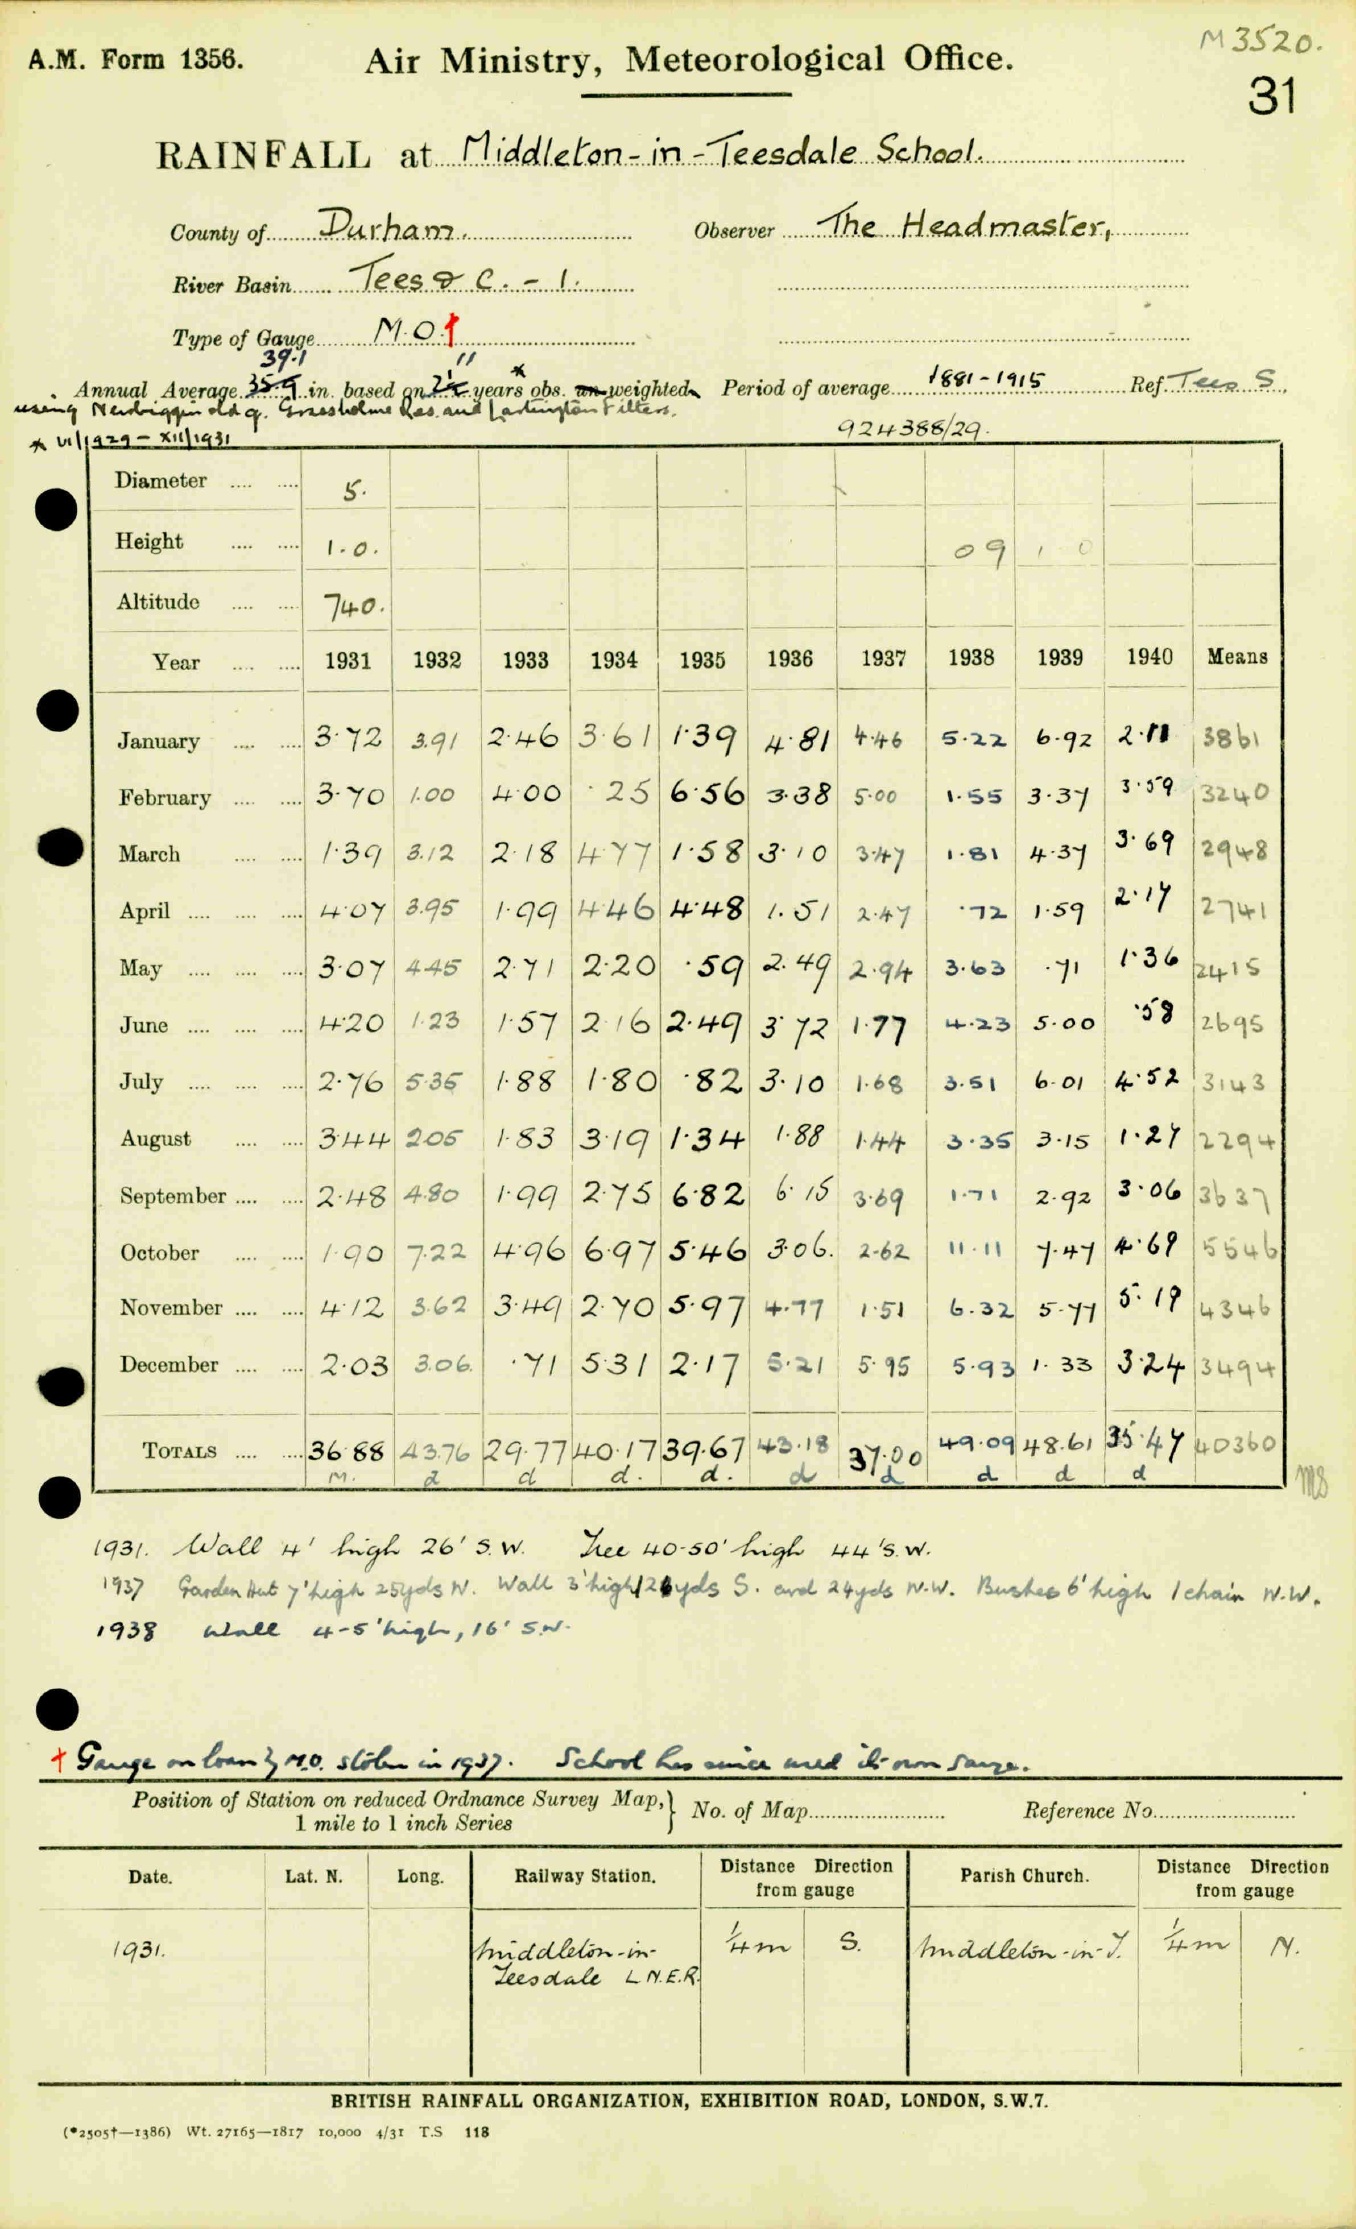 M3520.
A.M. Form 1356. Air Ministry, Meteorological Office.
31
RAINFALL at Middleton-in-Teesdale School.
County of Durham. Observer The Headmaster,
River Basin Tees & C. - 1.
Type of Gauge M.O.†
39.1 11 *
Annual Average 35.9 in. based on years obs. un weighted Period of average 1881-1915 Ref. Tees S.
using Newbiggin old g. Grassholme Res. and Lartington Filters.
* VI/1929 - XII/1931 924388/29.
Diameter .... .... 5.
Height .... .... 1.0. 09 1 0
Altitude .... .... 740.
Year .... .... 1931 1932 1933 1934 1935 1936 1937 1938 1939 1940 Means
January .... .... 3.72 3.91 2.46 3.61 1.39 4.81 4.46 5.22 6.92 2.11 3861
February .... .... 3.70 1.00 4.00 .25 6.56 3.38 5.00 1.55 3.37 3.59 3240
March .... .... 1.39 3.12 2.18 4.77 1.58 3.10 3.47 1.81 4.37 3.69 2948
April .... .... .... 4.07 3.95 1.99 4.46 4.48 1.51 2.47 .72 1.59 2.17 2741
May .... .... .... 3.07 4.45 2.71 2.20 .59 2.49 2.94 3.63 .71 1.36 2415
June .... .... .... 4.20 1.23 1.57 2.16 2.49 3.72 1.77 4.23 5.00 .58 2695
July .... .... .... 2.76 5.35 1.88 1.80 .82 3.10 1.68 3.51 6.01 4.52 3143
August .... .... 3.44 2.05 1.83 3.19 1.34 1.88 1.44 3.35 3.15 1.27 2294
September .... .... 2.48 4.80 1.99 2.75 6.82 6.15 3.69 1.71 2.92 3.06 3637
October .... .... 1.90 7.22 4.96 6.97 5.46 3.06. 2.62 11.11 7.47 4.69 5546
November .... .... 4.12 3.62 3.49 2.70 5.97 4.77 1.51 6.32 5.77 5.19 4346
December .... .... 2.03 3.06 .71 5.31 2.17 5.21 5.95 5.93 1.33 3.24 3494
TOTALS .... .... 36.88 43.76 29.77 40.17 39.67 43.18 37.00 49.09 48.61 35.47 40360
M. d d d. d. d d d d d MS
1931. Wall 4' high 26' S.W. Tree 40-50' high 44' S.W.
1937 Garden Hut 7' high 25yds N. Wall 3' high yds S. and 24yds N.W. Bushes 6' high 1 chain N.W.
1938 Wall 4-5' high, 16' S.W.
† Gauge on loan by M.O. stolen in 1937. School has since used its own gauge.
Position of Station on reduced Ordnance Survey Map,} No. of Map Reference No.
1 mile to 1 inch Series
Date. Lat. N. Long. Railway Station. Distance Direction from gauge Parish Church. Distance Direction from gauge
1931. Middleton-in- 1/4 m S. Middleton-in-T. 1/4 m N.
Teesdale L.N.E.R.
BRITISH RAINFALL ORGANIZATION, EXHIBITION ROAD, LONDON, S.W.7.
(*2505†—1386) Wt. 27165—1817 10,000 4/31 T.S 118